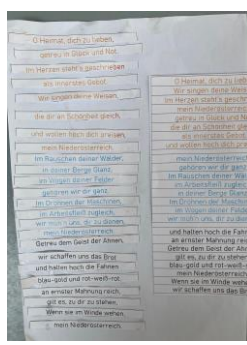 O Heimat, dich zu lieben,
getreu in Glück und Not,
im Herzen steht's geschrieben
als innerstes Gebot.
Wir singen deine Weisen,
die dir an Schönheit gleich,
und wollen hoch dich preisen,
mein Niederösterreich.
Im Rauschen deiner Wälder,
in deiner Berge Glanz,
im Wogen deiner Felder
gehören wir dir ganz.
Im Dröhnen der Maschinen,
im Arbeitsfleiß zugleich,
wir müh'n uns, dir zu dienen,
mein Niederösterreich.
Getreu dem Geist der Ahnen,
wir schaffen uns das Brot
und halten hoch die Fahnen
blau-gold und rot-weiß-rot.
an ernster Mahnung reich,
gilt es, zu dir zu stehen,
Wenn sie im Winde wehen,
mein Niederösterreich.
O Heimat, dich zu
Wir singen deine
im Herzen steht's
mein Niederösterreich
getreu in Glück und
die dir an Schönheit
als innerstes
und wollen hoch dich
mein Niederösterreich
gehören wir dir
Im Rauschen deiner
im Arbeitsfleiß
in deiner Berge
Im Dröhnen der
im Wogen deiner
wir müh'n uns, dir
und halten hoch die
an ernster Mahnung
Getreu dem Geist der
gilt es, zu dir zu
blau-gold und rot-weiß
mein Niederösterreich
Wenn sie im Winde
wir schaffen uns das